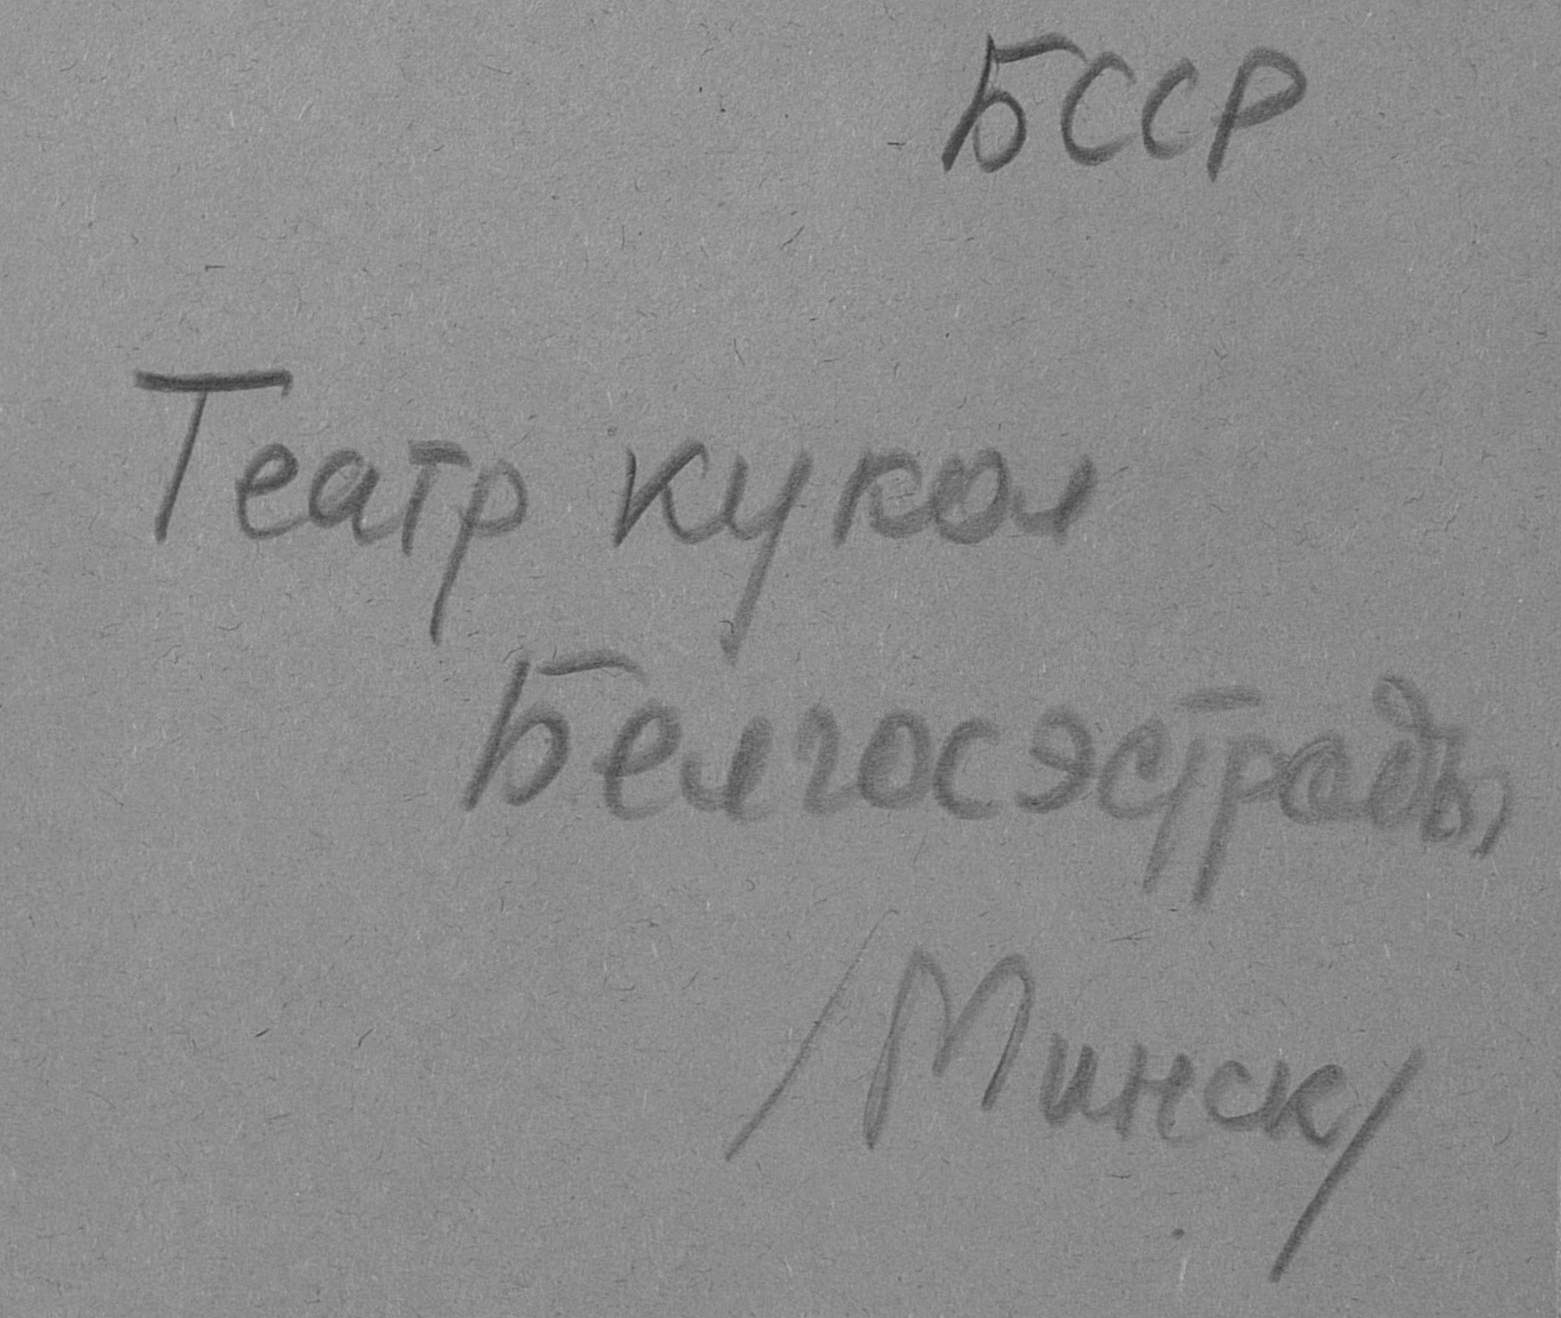 БССР
Театр кукол
Белгосэстрады
/Минск/